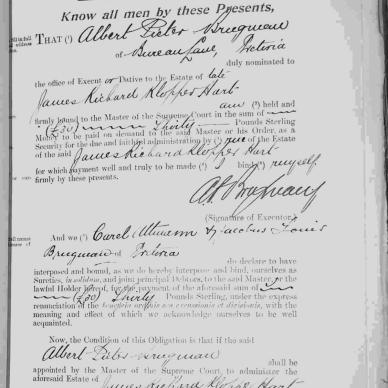 Know all men by these Presents,
THAT (¹) Albert Pieter Brugman
of Bureau Lane, Pretoria
duly nominated to
the office of Executor Dative to the Estate of late
James Richard Klopper Hart
am (²) held and
firmly bound to the Master of the Supreme Court in the sum of
(£30) Thirty Pounds Sterling
Money to be paid on demand to the said Master or his Order, as a
Security for the due and faithful administration by (³) me of the Estate
of the said James Richard Klopper Hart
for which payment well and truly to be made (⁴) I bind (⁵) myself
firmly by these presents.
(Signature of Executor.)
And we (⁶) Carel Uttmann & Jacobus Louis
Brugman of Pretoria
do declare to have
interposed and bound, as we do hereby interpose and bind, ourselves as
Sureties, in solidum, and joint principal Debtors, to the said Master, or the
lawful Holder hereof, for the payment of the aforesaid sum of
(£30) Thirty Pounds Sterling, under the express
renunciation of the beneficia ordinis seu excussionis et divisionis, with the
meaning and effect of which we acknowledge ourselves to be well
acquainted.
Now, the Condition of this Obligation is that if the said
Albert Pieter Brugman
shall be
appointed by the Master of the Supreme Court, to administer the
aforesaid Estate of James Richard Klopper Hart